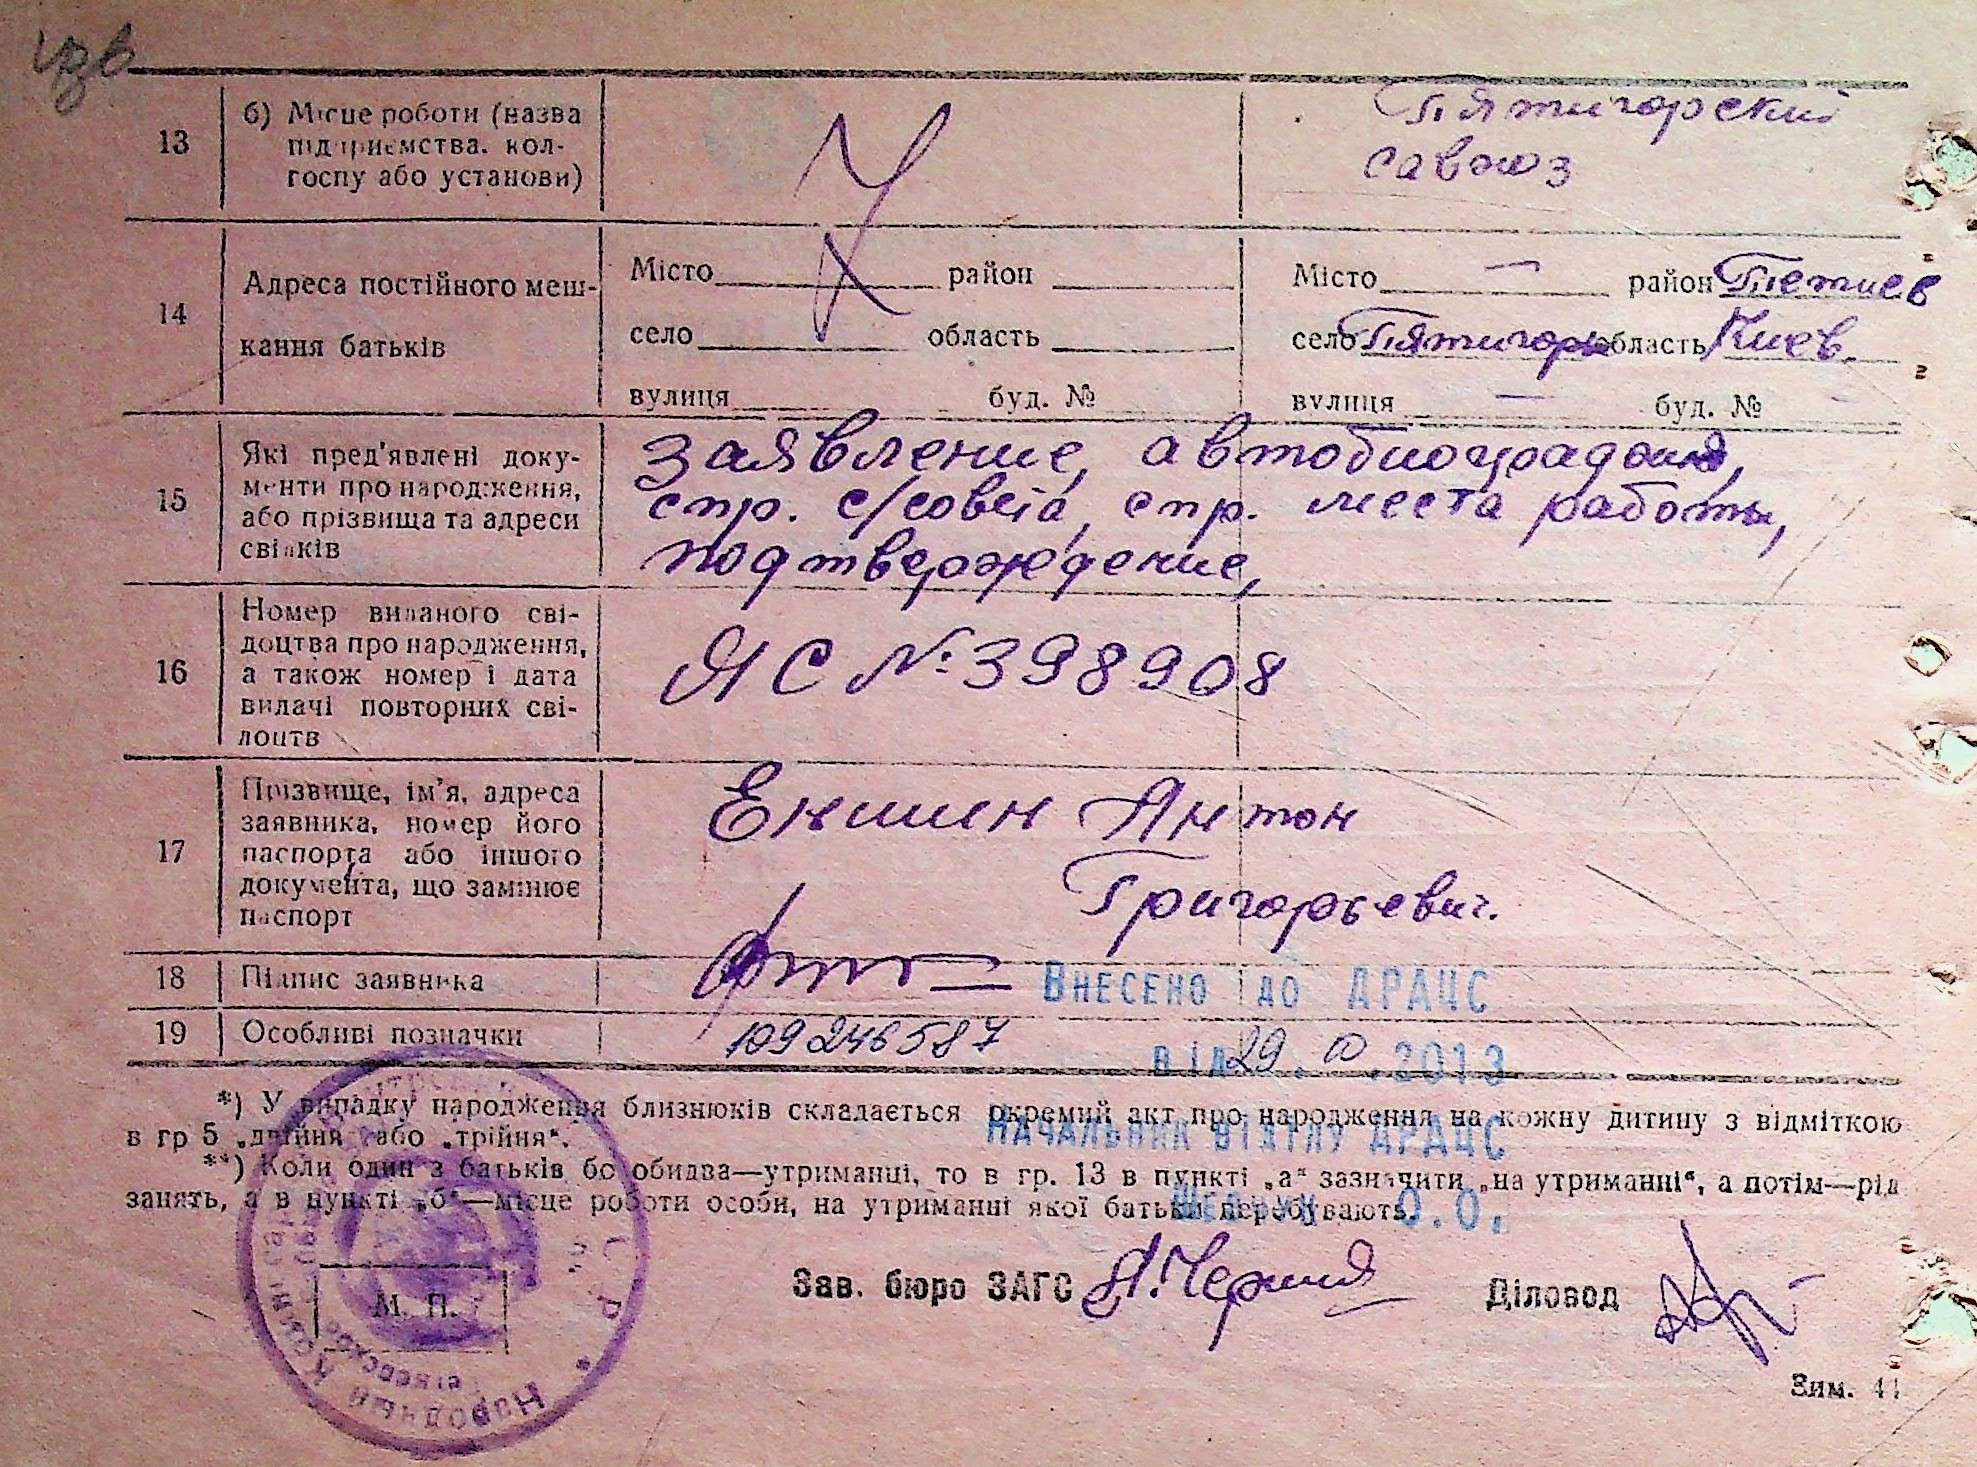 13
б) Місце роботи (назва
підприємства, кол-
госпу або установи)
Пятигорский
савоюз
14
Адреса постійного меш-
кання батьків
Місто район
село область
вулиця буд. №
Місто — район Тетиев
село Пятигоры область Киев.
вулиця — буд. № —
15
Які пред'явлені доку-
менти про народження,
або прізвища та адреси
свідків
заявление, автобиография,
спр. с/совета, спр. места работы,
подтверждение,
16
Номер виданого сві-
доцтва про народження,
а також номер і дата
видачі повторних сві-
доцтв
ЯС №: 398908
17
Прізвище, ім'я, адреса
заявника, номер його
паспорта або іншого
документа, що замінює
паспорт
Енишин Антон
Григорьевич.
18 Підпис заявника
Внесено до ДРАЦС
19 Особливі позначки
109246587
від 29. .2013
*) У випадку народження близнюків складається окремий акт про народження на кожну дитину з відміткою
в гр 5 „двійня або „трійня“.
Начальник відділу ДРАЦС
**) Коли один з батьків бо обидва—утриманці, то в гр. 13 в пункті „а“ зазначити „на утриманні“, а потім—рід
занять, а в пункті „б“—місце роботи особи, на утриманні якої батьки перебувають.
О.О.
М. П.
Зав. бюро ЗАГС
Діловод
Зим. 41